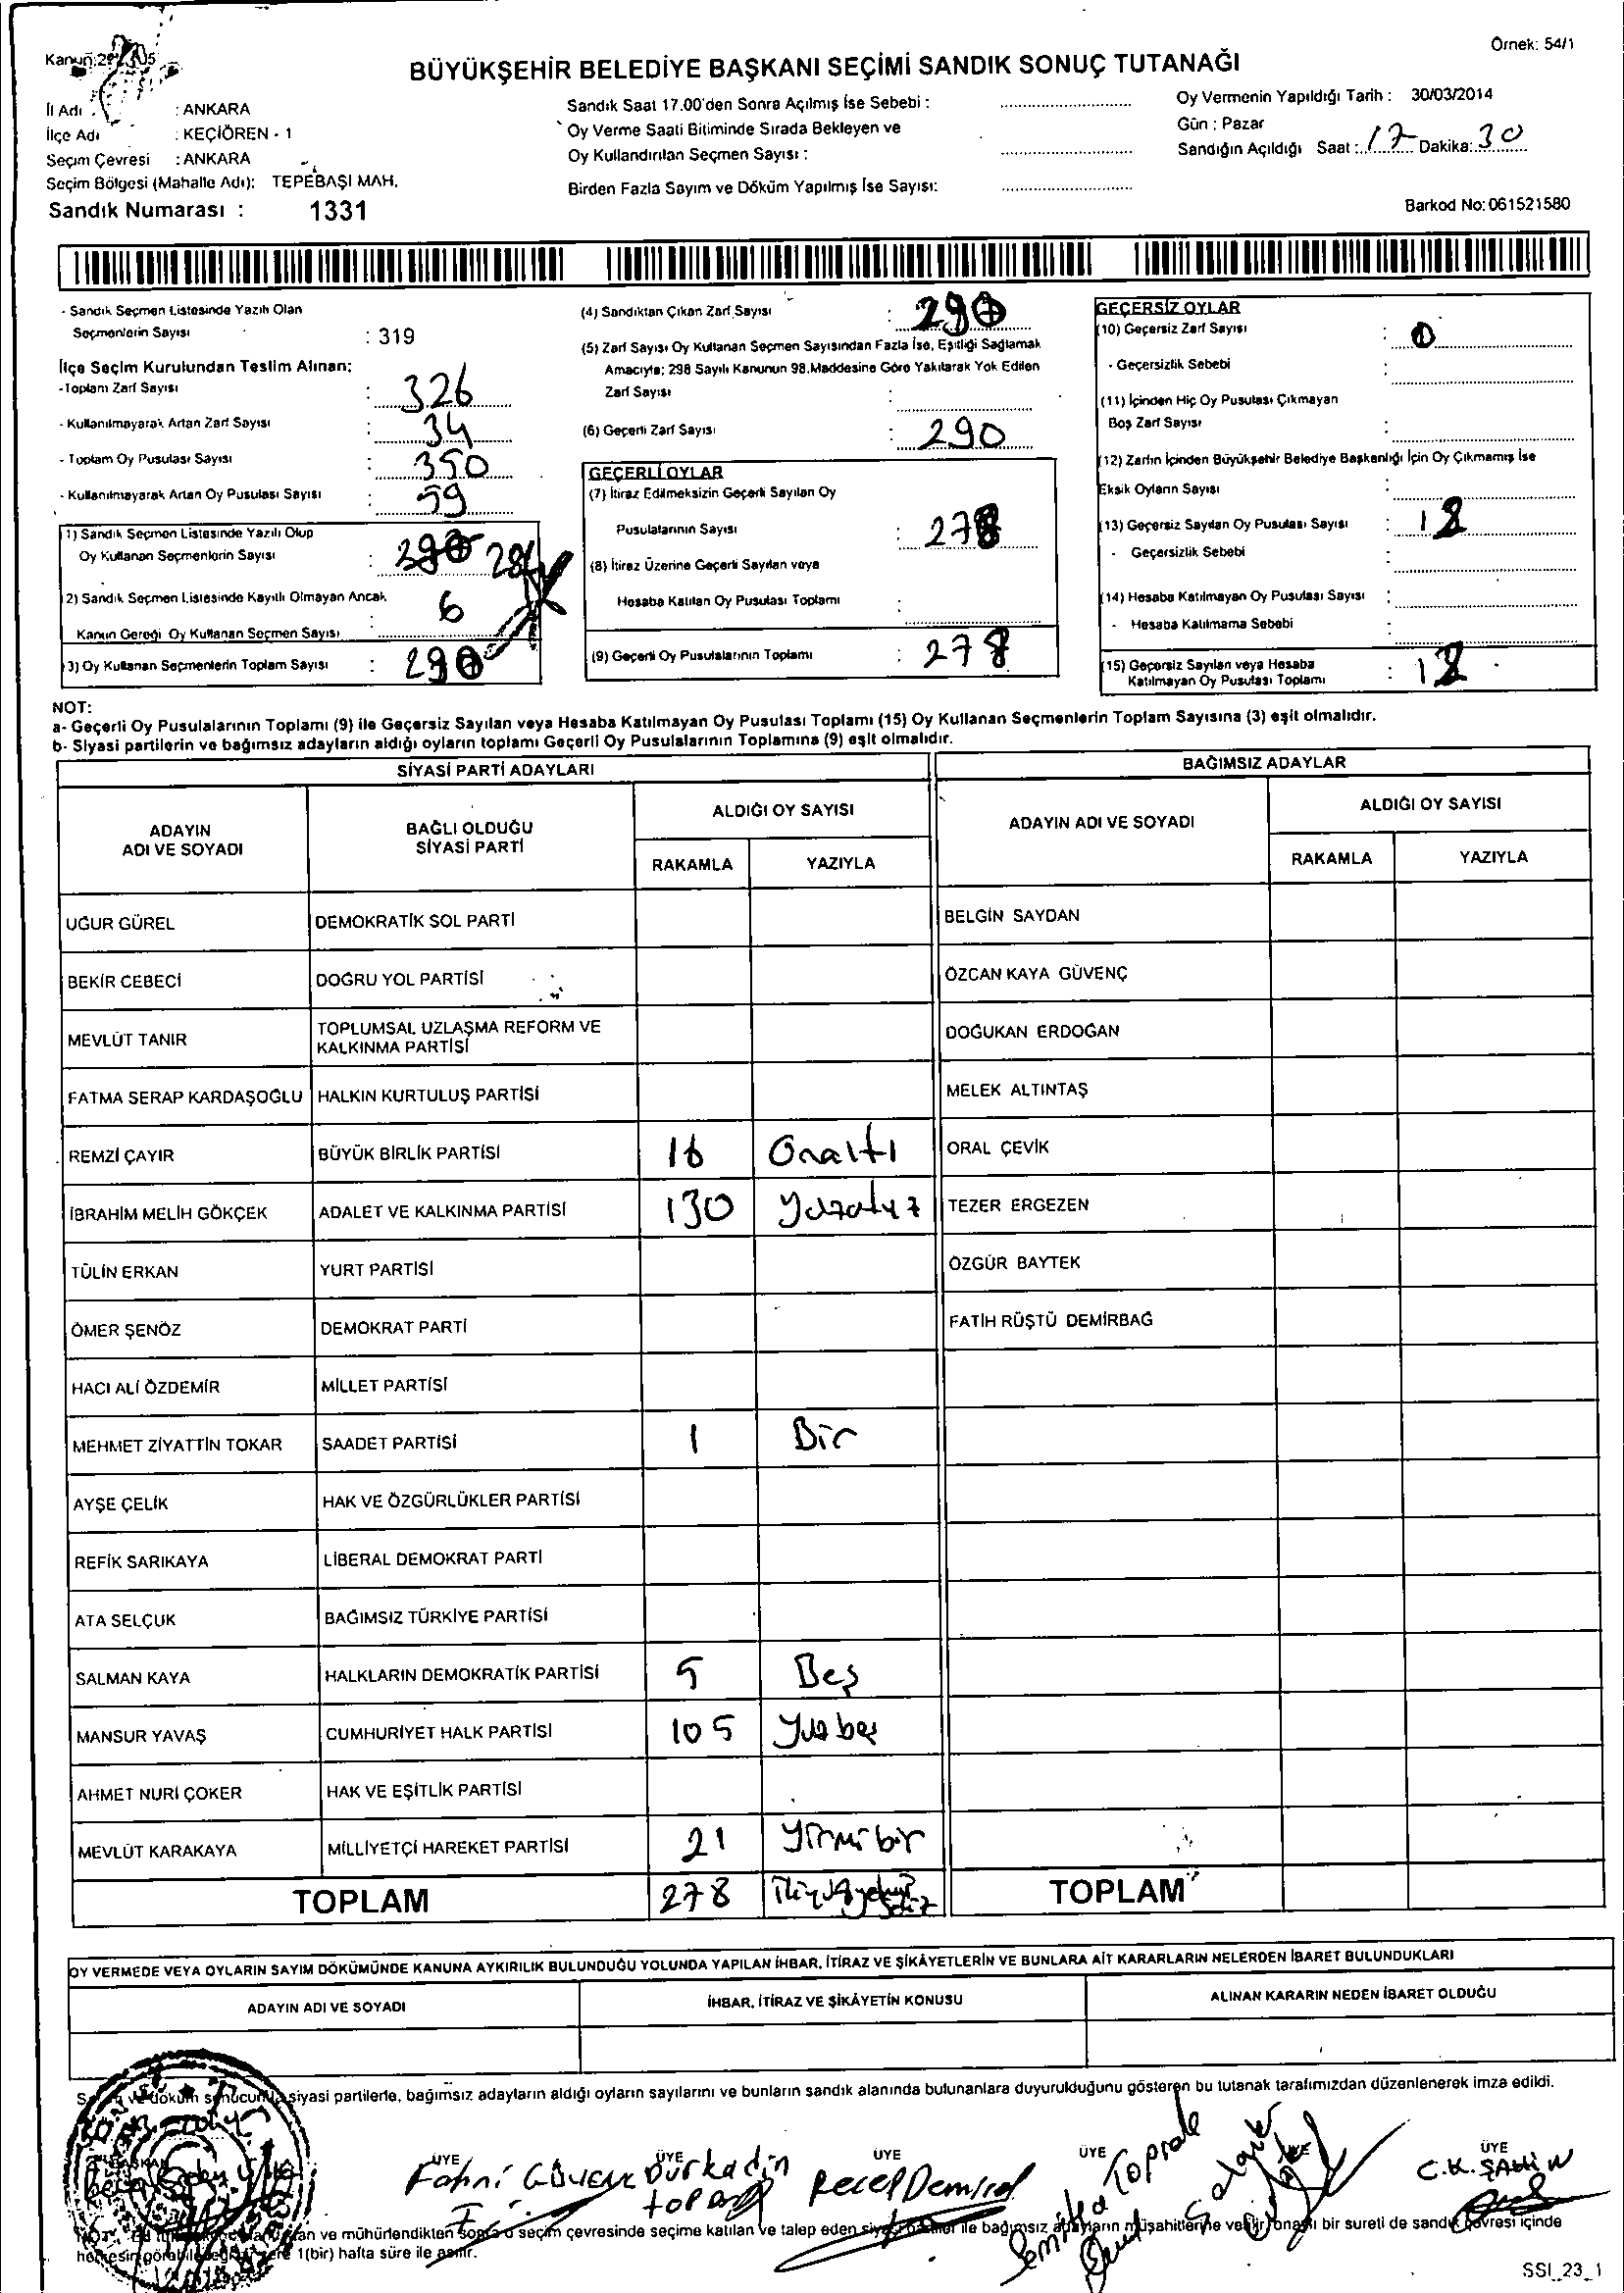 Örnek: 54/1
BÜYÜKŞEHİR BELEDİYE BAŞKANI SEÇİMİ SANDIK SONUÇ TUTANAĞI
İl Adı : ANKARA
İlçe Adı : KEÇİÖREN - 1
Seçim Çevresi : ANKARA
Seçim Bölgesi (Mahalle Adı): TEPEBAŞI MAH.
Sandık Numarası : 1331
Sandık Saat 17.00'den Sonra Açılmış İse Sebebi :
Oy Verme Saati Bitiminde Sırada Bekleyen ve
Oy Kullandırılan Seçmen Sayısı :
Birden Fazla Sayım ve Döküm Yapılmış İse Sayısı:
Oy Vermenin Yapıldığı Tarih : 30/03/2014
Gün : Pazar
Sandığın Açıldığı Saat : 17 Dakika: 30
Barkod No: 061521580
- Sandık Seçmen Listesinde Yazılı Olan
Seçmenlerin Sayısı : 319
İlçe Seçim Kurulundan Teslim Alınan:
-Toplam Zarf Sayısı : 326
- Kullanılmayarak Artan Zarf Sayısı : 34
- Toplam Oy Pusulası Sayısı : 350
- Kullanılmayarak Artan Oy Pusulası Sayısı : 59
1) Sandık Seçmen Listesinde Yazılı Olup
Oy Kullanan Seçmenlerin Sayısı : 290 284
2) Sandık Seçmen Listesinde Kayıtlı Olmayan Ancak
Kanun Gereği Oy Kullanan Seçmen Sayısı : 6
3) Oy Kullanan Seçmenlerin Toplam Sayısı : 290
(4) Sandıktan Çıkan Zarf Sayısı : 290
(5) Zarf Sayısı Oy Kullanan Seçmen Sayısından Fazla İse, Eşitliği Sağlamak
Amacıyla; 298 Sayılı Kanunun 98.Maddesine Göre Yakılarak Yok Edilen
Zarf Sayısı :
(6) Geçerli Zarf Sayısı : 290
GEÇERLİ OYLAR
(7) İtiraz Edilmeksizin Geçerli Sayılan Oy
Pusulalarının Sayısı : 278
(8) İtiraz Üzerine Geçerli Sayılan veya
Hesaba Katılan Oy Pusulası Toplamı :
(9) Geçerli Oy Pusulalarının Toplamı : 278
GEÇERSİZ OYLAR
(10) Geçersiz Zarf Sayısı : 0
- Geçersizlik Sebebi :
(11) İçinden Hiç Oy Pusulası Çıkmayan
Boş Zarf Sayısı :
(12) Zarfın İçinden Büyükşehir Belediye Başkanlığı İçin Oy Çıkmamış İse
Eksik Oyların Sayısı :
(13) Geçersiz Sayılan Oy Pusulası Sayısı : 12
- Geçersizlik Sebebi :
(14) Hesaba Katılmayan Oy Pusulası Sayısı :
- Hesaba Katılmama Sebebi :
(15) Geçersiz Sayılan veya Hesaba
Katılmayan Oy Pusulası Toplamı : 12
NOT:
a- Geçerli Oy Pusulalarının Toplamı (9) ile Geçersiz Sayılan veya Hesaba Katılmayan Oy Pusulası Toplamı (15) Oy Kullanan Seçmenlerin Toplam Sayısına (3) eşit olmalıdır.
b- Siyasi partilerin ve bağımsız adayların aldığı oyların toplamı Geçerli Oy Pusulalarının Toplamına (9) eşit olmalıdır.
SİYASİ PARTİ ADAYLARI BAĞIMSIZ ADAYLAR
ADAYIN ADI VE SOYADI BAĞLI OLDUĞU SİYASİ PARTİ ALDIĞI OY SAYISI ADAYIN ADI VE SOYADI ALDIĞI OY SAYISI
RAKAMLA YAZIYLA RAKAMLA YAZIYLA
UĞUR GÜREL DEMOKRATİK SOL PARTİ BELGİN SAYDAN
BEKİR CEBECİ DOĞRU YOL PARTİSİ ÖZCAN KAYA GÜVENÇ
MEVLÜT TANIR TOPLUMSAL UZLAŞMA REFORM VE KALKINMA PARTİSİ DOĞUKAN ERDOĞAN
FATMA SERAP KARDAŞOĞLU HALKIN KURTULUŞ PARTİSİ MELEK ALTINTAŞ
REMZİ ÇAYIR BÜYÜK BİRLİK PARTİSİ 16 Onaltı ORAL ÇEVİK
İBRAHİM MELİH GÖKÇEK ADALET VE KALKINMA PARTİSİ 130 Yüzotuz TEZER ERGEZEN
TÜLİN ERKAN YURT PARTİSİ ÖZGÜR BAYTEK
ÖMER ŞENÖZ DEMOKRAT PARTİ FATİH RÜŞTÜ DEMİRBAĞ
HACI ALİ ÖZDEMİR MİLLET PARTİSİ
MEHMET ZİYATTİN TOKAR SAADET PARTİSİ 1 Bir
AYŞE ÇELİK HAK VE ÖZGÜRLÜKLER PARTİSİ
REFİK SARIKAYA LİBERAL DEMOKRAT PARTİ
ATA SELÇUK BAĞIMSIZ TÜRKİYE PARTİSİ
SALMAN KAYA HALKLARIN DEMOKRATİK PARTİSİ 5 Beş
MANSUR YAVAŞ CUMHURİYET HALK PARTİSİ 105 Yüzbeş
AHMET NURİ ÇOKER HAK VE EŞİTLİK PARTİSİ
MEVLÜT KARAKAYA MİLLİYETÇİ HAREKET PARTİSİ 21 Yirmibir
TOPLAM 278 TOPLAM
OY VERMEDE VEYA OYLARIN SAYIM DÖKÜMÜNDE KANUNA AYKIRILIK BULUNDUĞU YOLUNDA YAPILAN İHBAR, İTİRAZ VE ŞİKÂYETLERİN VE BUNLARA AİT KARARLARIN NELERDEN İBARET BULUNDUKLARI
ADAYIN ADI VE SOYADI İHBAR, İTİRAZ VE ŞİKÂYETİN KONUSU ALINAN KARARIN NEDEN İBARET OLDUĞU
siyasi partilerle, bağımsız adayların aldığı oyların sayılarını ve bunların sandık alanında bulunanlara duyurulduğunu gösteren bu tutanak tarafımızdan düzenlenerek imza edildi.
ÜYE ÜYE ÜYE ÜYE ÜYE
Fahri Güvenç Durkadın Recep Demirel Toprak C.K. ŞAHİN
ve mühürlendikten sonra o seçim çevresinde seçime katılan ve talep eden siyasi partiler ile bağımsız adayların müşahitlerine verilir, onaylı bir sureti de sandık çevresi içinde
1(bir) hafta süre ile asılır.
SSI_23_1